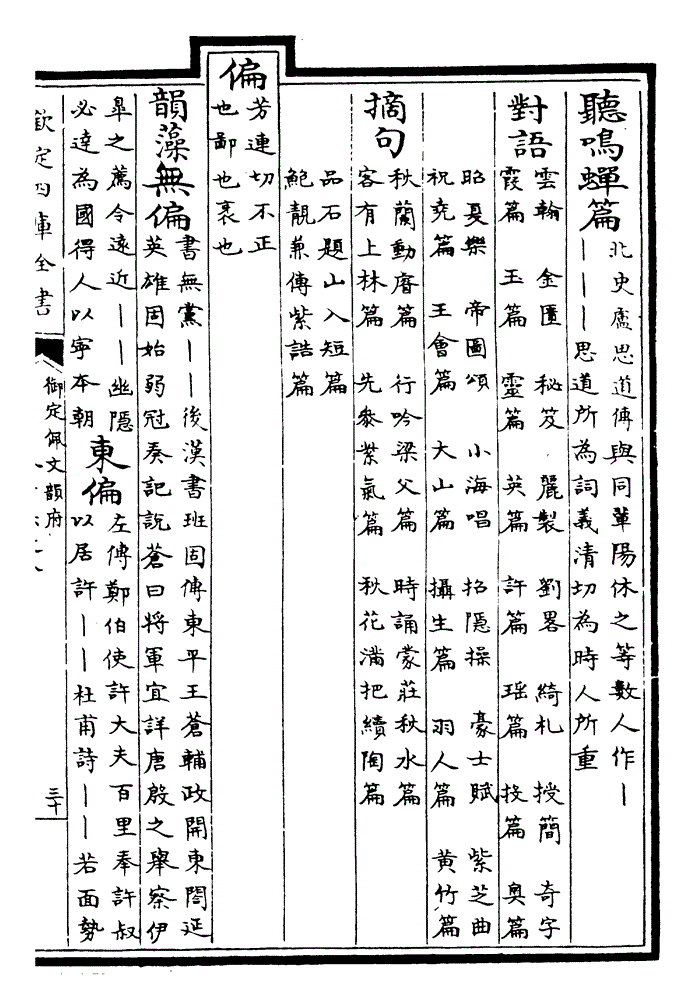 聽鳴蟬篇北史盧思道傳與同軰陽休之等數人作｜
｜｜｜思道所為詞義清切為時人所重
對語雲翰 金匱 秘笈 麗製 劉畧 綺札 授簡 奇字
霞篇 玉篇 靈篇 英篇 許篇 瑶篇 投篇 奥篇
昭夏樂 帝圖頌 小海唱 招隠操 豪士賦 紫芝曲
祝堯篇 王會篇 大山篇 攝生篇 羽人篇 黄竹篇
摘句秋蘭動磨篇 行吟梁父篇 時誦蒙莊秋水篇
客有上林篇 先黍紫氣篇 秋花滿把續陶篇
品石題山入短篇
鮑靚兼傳紫誥篇
偏芳連切不正
也鄙也裹也
韻藻無偏書無黨｜｜後漢書班固傳東平王蒼輔政開東閤延
英雄固始弱冠奏記說蒼曰將軍宜詳唐殷之舉察伊
臯之薦令遠近｜｜幽隠
必達為國得人以寜本朝
東偏左傳鄭伯使許大夫百里奉許叔
以居許｜｜杜甫詩｜｜若面勢
欽定四庫全書
御定佩文韻府
三十